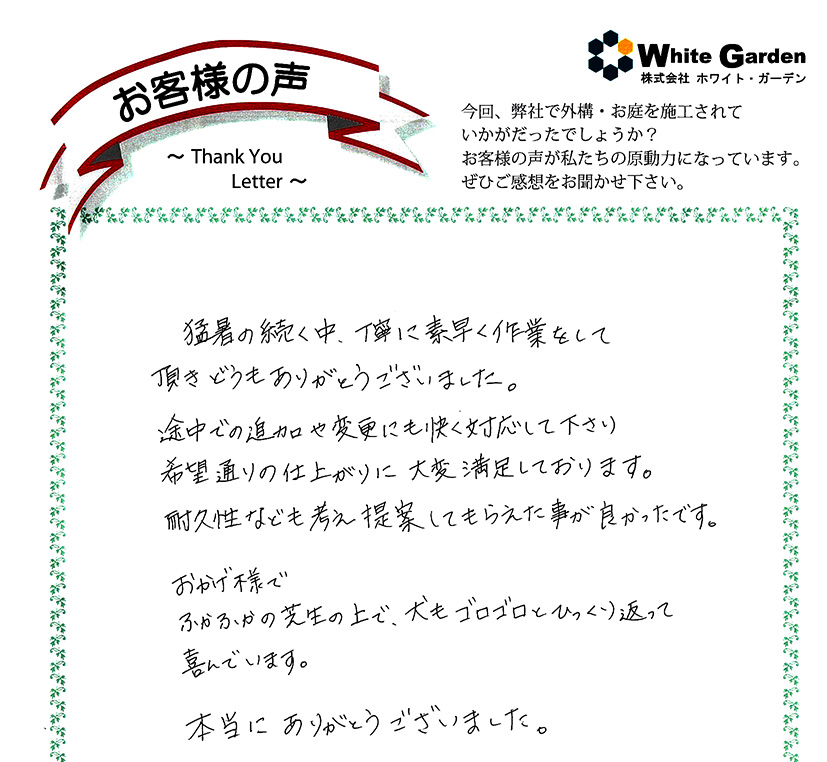 お客様の声
～ Thank You
Letter ～
White Garden
株式会社 ホワイト・ガーデン
今回、弊社で外構・お庭を施工されて
いかがだったでしょうか？
お客様の声が私たちの原動力になっています。
ぜひご感想をお聞かせ下さい。
猛暑の続く中、丁寧に素早く作業をして
頂きどうもありがとうございました。
途中での追加や変更にも快く対応して下さり
希望通りの仕上がりに大変満足しております。
耐久性なども考え提案してもらえた事が良かったです。
おかげ様で
ふかふかの芝生の上で、犬もゴロゴロとひっくり返って
喜んでいます。
本当にありがとうございました。